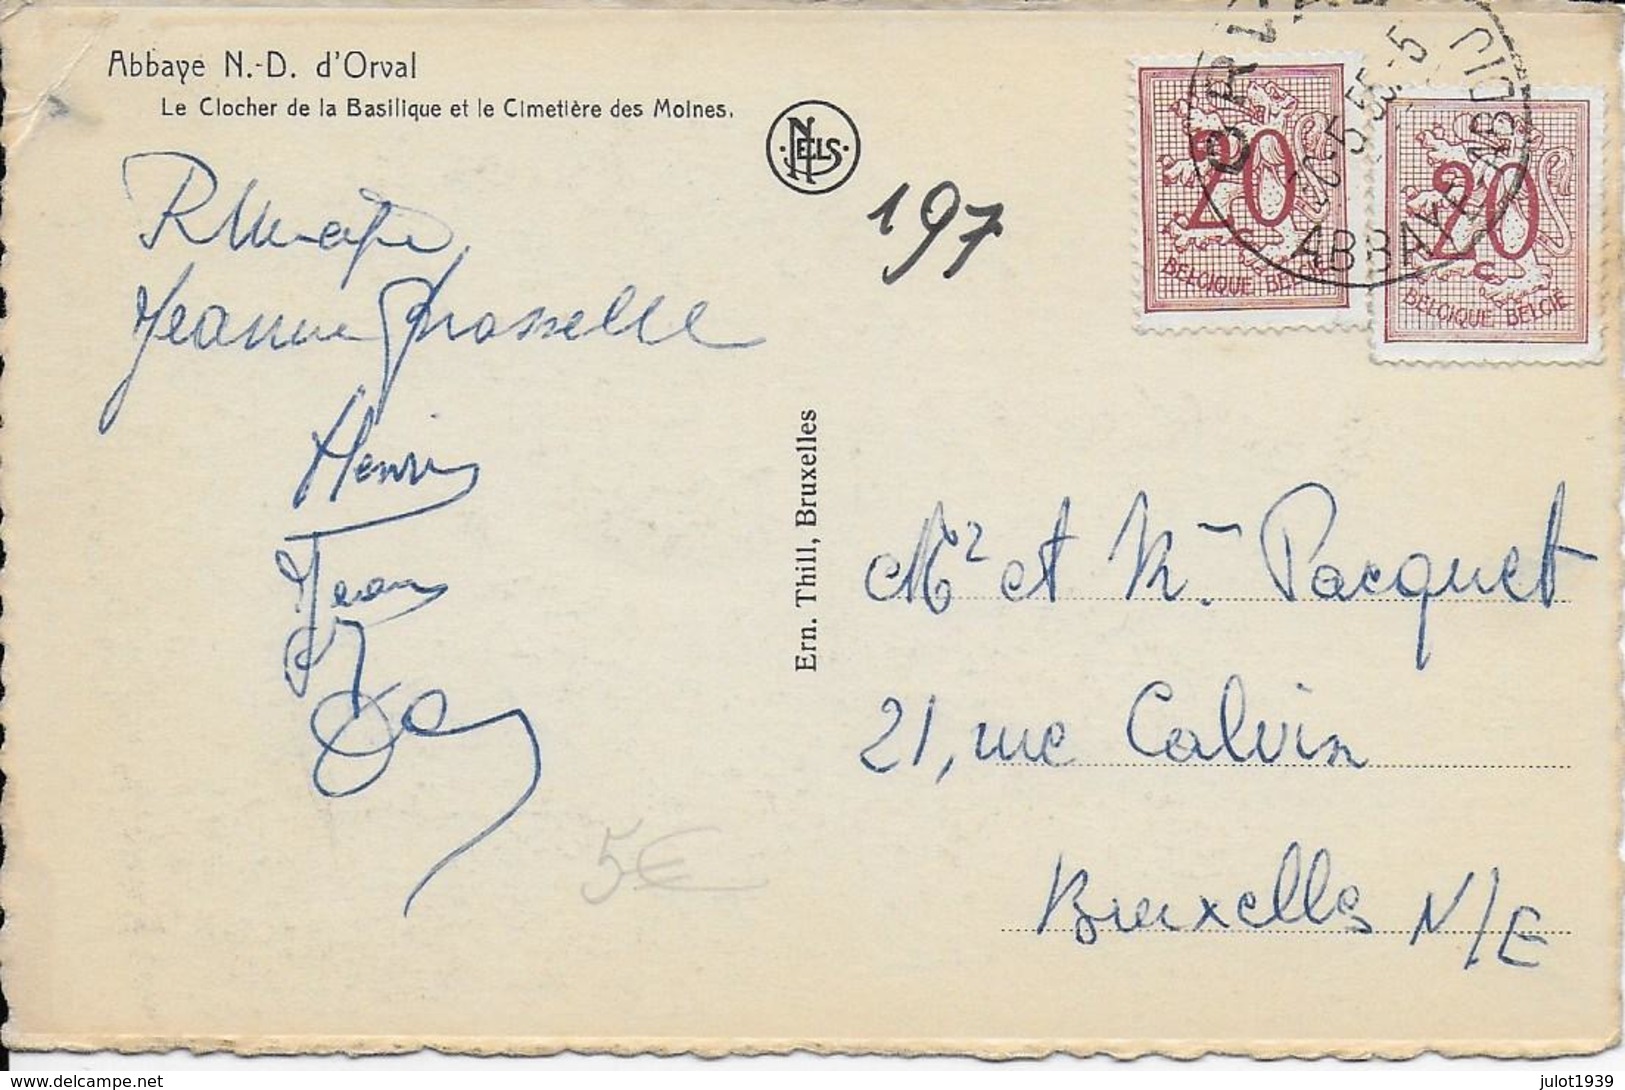 Abbaye N.-D. d'Orval
Le Clocher de la Basilique et le Cimetière des Moines.
NELS
197
20
BELGIQUE BELGIË
20
BELGIQUE BELGIË
ABBAYE
Jeanne
Henri
Jean
5€
Ern. Thill, Bruxelles
Mr et Mme Pacquet
21, rue Calvin
Bruxelles N/E
www.delcampe.net
julot1939